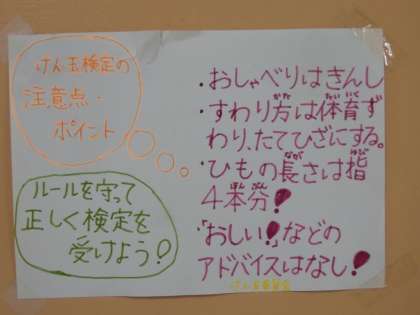 けん玉検定の
注意点・
ポイント
ルールを守って
正しく検定を
受けよう!
・おしゃべりはきんし
・すわり方は体育ず
わり、たてひざにする。
・ひもの長さは指
4本分!
・「おしい!」などの
アドバイスはなし!